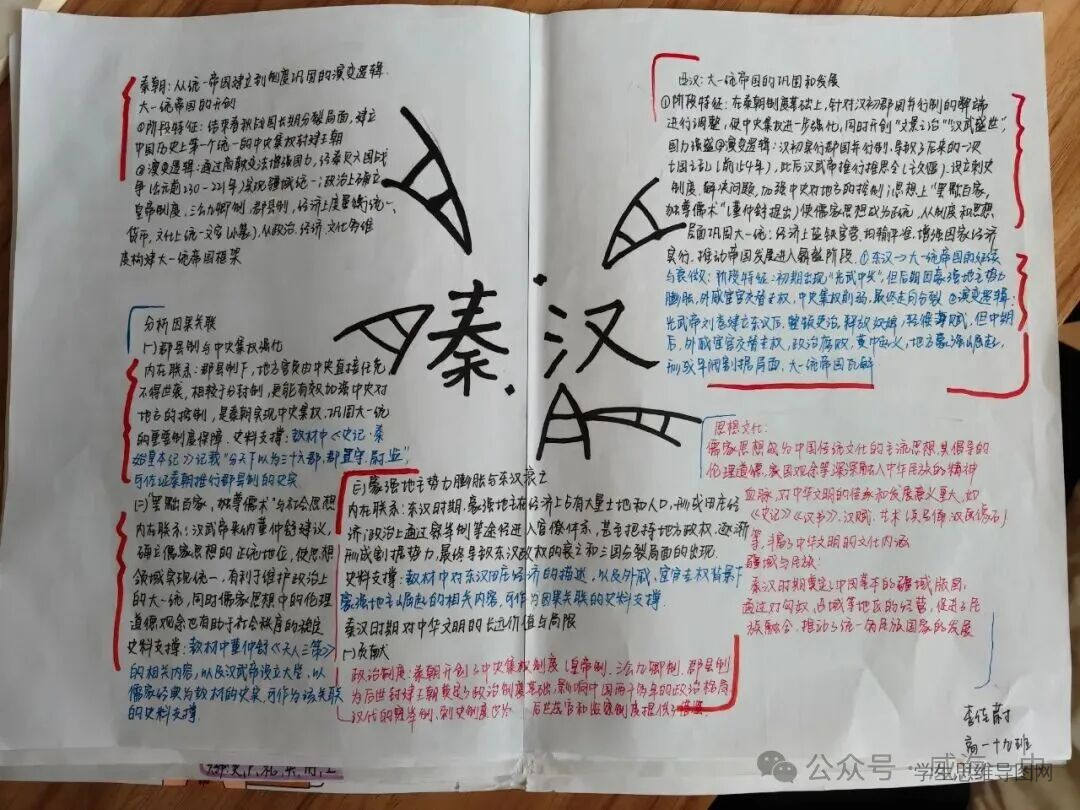 秦朝:从统一帝国建立到制度巩固的演变逻辑.
大一统帝国的开创
①阶段特征:结束春秋战国长期分裂局面,建立
中国历史上第一个统一的中央集权封建王朝
②演变逻辑:通过商鞅变法增强国力,经秦灭六国战
争(公元前230-221年)实现疆域统一;政治上确立
皇帝制度,三公九卿制,郡县制,经济上度量衡统一、
货币,文化上统一文字(小篆),从政治.经济.文化多维
度构建大一统帝国框架
分析因果关联
(一)郡县制与中央集权强化
内在联系:郡县制下,地方官吏由中央直接任免
不得世袭,相较于分封制,更能有效加强中央对
地方的控制,是秦朝实现中央集权、巩固大一统
的重要制度保障.史料支撑:教材中《史记·秦
始皇本纪》记载"分天下以为三十六郡,郡置守.尉.监"
可佐证秦朝推行郡县制的史实
(二)"罢黜百家,独尊儒术"与社会思想
内在联系:汉武帝采纳董仲舒建议,
确立儒家思想的正统地位,使思想
领域实现统一,有利于维护政治上
的大一统,同时儒家思想中的伦理
道德观念也有助于社会秩序的稳定
史料支撑:教材中董仲舒《天人三策》
的相关内容,以及汉武帝设立太学、以
儒家经典为教材的史实,可作为该关联
的史料支撑.
秦汉
(三)豪强地主势力膨胀与东汉衰亡
内在联系:东汉时期,豪强地主在经济上占有大量土地和人口,形成田庄经
济,政治上通过察举制等途径进入官僚体系,甚至把持地方政权,逐渐
形成割据势力,最终导致东汉政权的衰亡和三国分裂局面的出现.
史料支撑:教材中对东汉田庄经济的描述,以及外戚、宦官专权背景下
豪强地主崛起的相关内容,可作为因果关联的史料支撑.
秦汉时期对中华文明的长远价值与局限
(一)贡献
政治制度:秦朝开创了中央集权制度(皇帝制、三公九卿制、郡县制
为后世封建王朝奠定了政治制度基础,影响中国两千多年的政治格局,
汉代的察举制、刺史制度也为 后世选官和监察制度提供了借鉴
西汉:大一统帝国的巩固和发展
①阶段特征:在秦朝制度基础上,针对汉初郡国并行制的弊端
进行调整,使中央集权进一步强化,同时开创"文景之治""汉武盛世",
国力强盛②演变逻辑:汉初实行郡国并行制,导致了后来的一次
七国之乱(前154年),此后汉武帝推行推恩令(主父偃).设立刺史
制度,解决问题,加强中央对地方的控制;思想上"罢黜百家,
独尊儒术"(董仲舒提出)使儒家思想成为正统,从制度和思想
层面巩固大一统;经济上盐铁官营、均输平准,增强国家经济
实行,推动帝国发展进入鼎盛阶段.①东汉→大一统帝国的延续
与衰微:阶段特征:初期出现"光武中兴",但后期因豪强地主势力
膨胀,外戚宦官交替专权,中央集权削弱,最终走向分裂 ②演变逻辑:
光武帝刘秀建立东汉后,整顿吏治,释放奴婢,轻徭薄赋,但中期
后,外戚宦官交替专权,政治腐败,黄巾起义,地方豪强崛起,
形成军阀割据局面,大一统帝国瓦解
思想文化:
儒家思想成为中国传统文化的主流思想,其倡导的
伦理道德,家国观念等深深融入中华民族的精神
血脉,对中华文明的传承和发展意义重大,如
《史记》《汉书》、汉赋、艺术(兵马俑.汉画像石)
等,丰富了中华文明的文化内涵
疆域与民族:
秦汉时期奠定了中国基本的疆域版图,
通过对匈奴,西域等地区的经营,促进了民
族融合,推动了统一多民族国家的发展
高一十九班
公众号
学生思维导图网